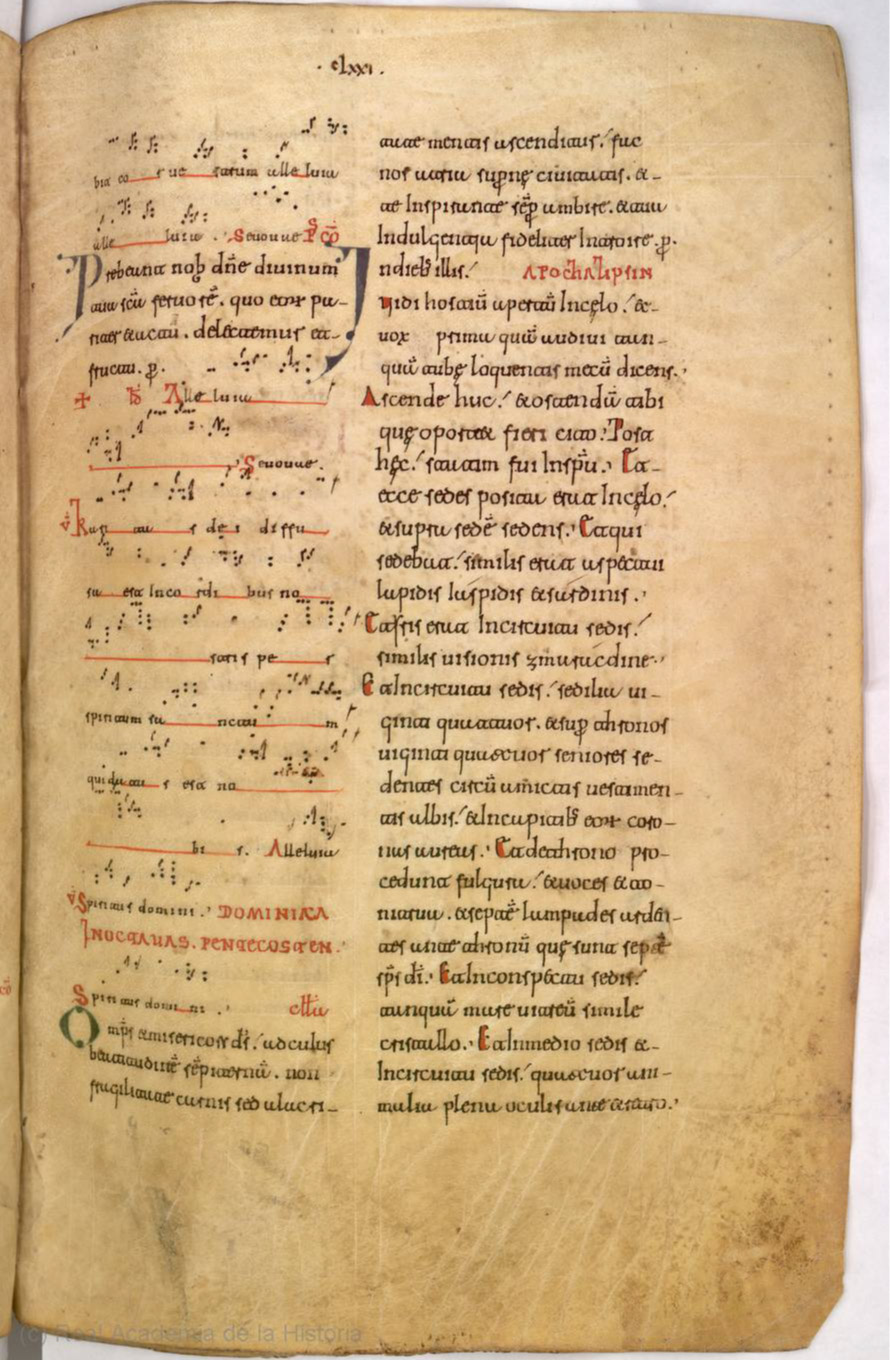 clxxi.
bia eo rue rarum alleluia
alle luia . Seuouae Pꝰ cō
Prebeant nob dn̄e diuinum
tua sc̄a feruorē. quo eor̄ pa-
riter & actu. delectemur &-
fructu. ꝑ.
Alle luia
Seuouae.
ꝟ Kari ta s de i diffu
sa est Inco rdi bus no
stris pe r
spiritum sa nctu m
qui da tu s est no
bi s. Alleluia
ꝟ Spiritus domini. DOMINIKA
INOCTAVAS. PENTECOSTEN.
Spiritus domi ni.
Omp̄s & misericors ds̄. ad cultus
beatitudinē sēpiternā. non
fragilitate carnis sed alacri-
tate mentis ascendisti. fac
nos atria supernę ciuitatis. &-
te Inspirante sēp ambire. & tua
Indulgentia fideliter Introire. ꝑ.
ndieb illis. APOCHALIPSIN
Vidi hostiū apertū Incęlo. &-
uox prima quā audiui tan-
quā tubę loquentis mecū dicens.
Ascende huc. & ostendā tibi
quę oportet fieri cito. Post
hęc. statim fui Insp̄u. Et-
ecce sedes posita erat Incęlo.
& supra sedē sedens. Et qui
sedebat. similis erat aspectui
lapidis Iaspidis & sardinis.
Et Iris erat Incircuitu sedis.
similis uisionis zmaracdine.
Et Incircuitu sedis. sedilia ui-
ginti quattuor. & sup thronos
uiginti quatuor seniores se-
dentes circū amicti uestimen-
tis albis. & Incapitib eor̄ coro-
nas aureas. Et dethrono pro-
cedunt fulgura. & uoces & to-
nitrua. & septē lampades arden-
tes ante thronū quę sunt septē
sp̄s dī. Et Inconspectu sedis.
tanquā mare uitreū simile
cristallo. Et Inmedio sedis &-
Incircuitu sedis. quatuor ani-
malia plena oculis ante & retro.
(c) Real Academia de la Historia